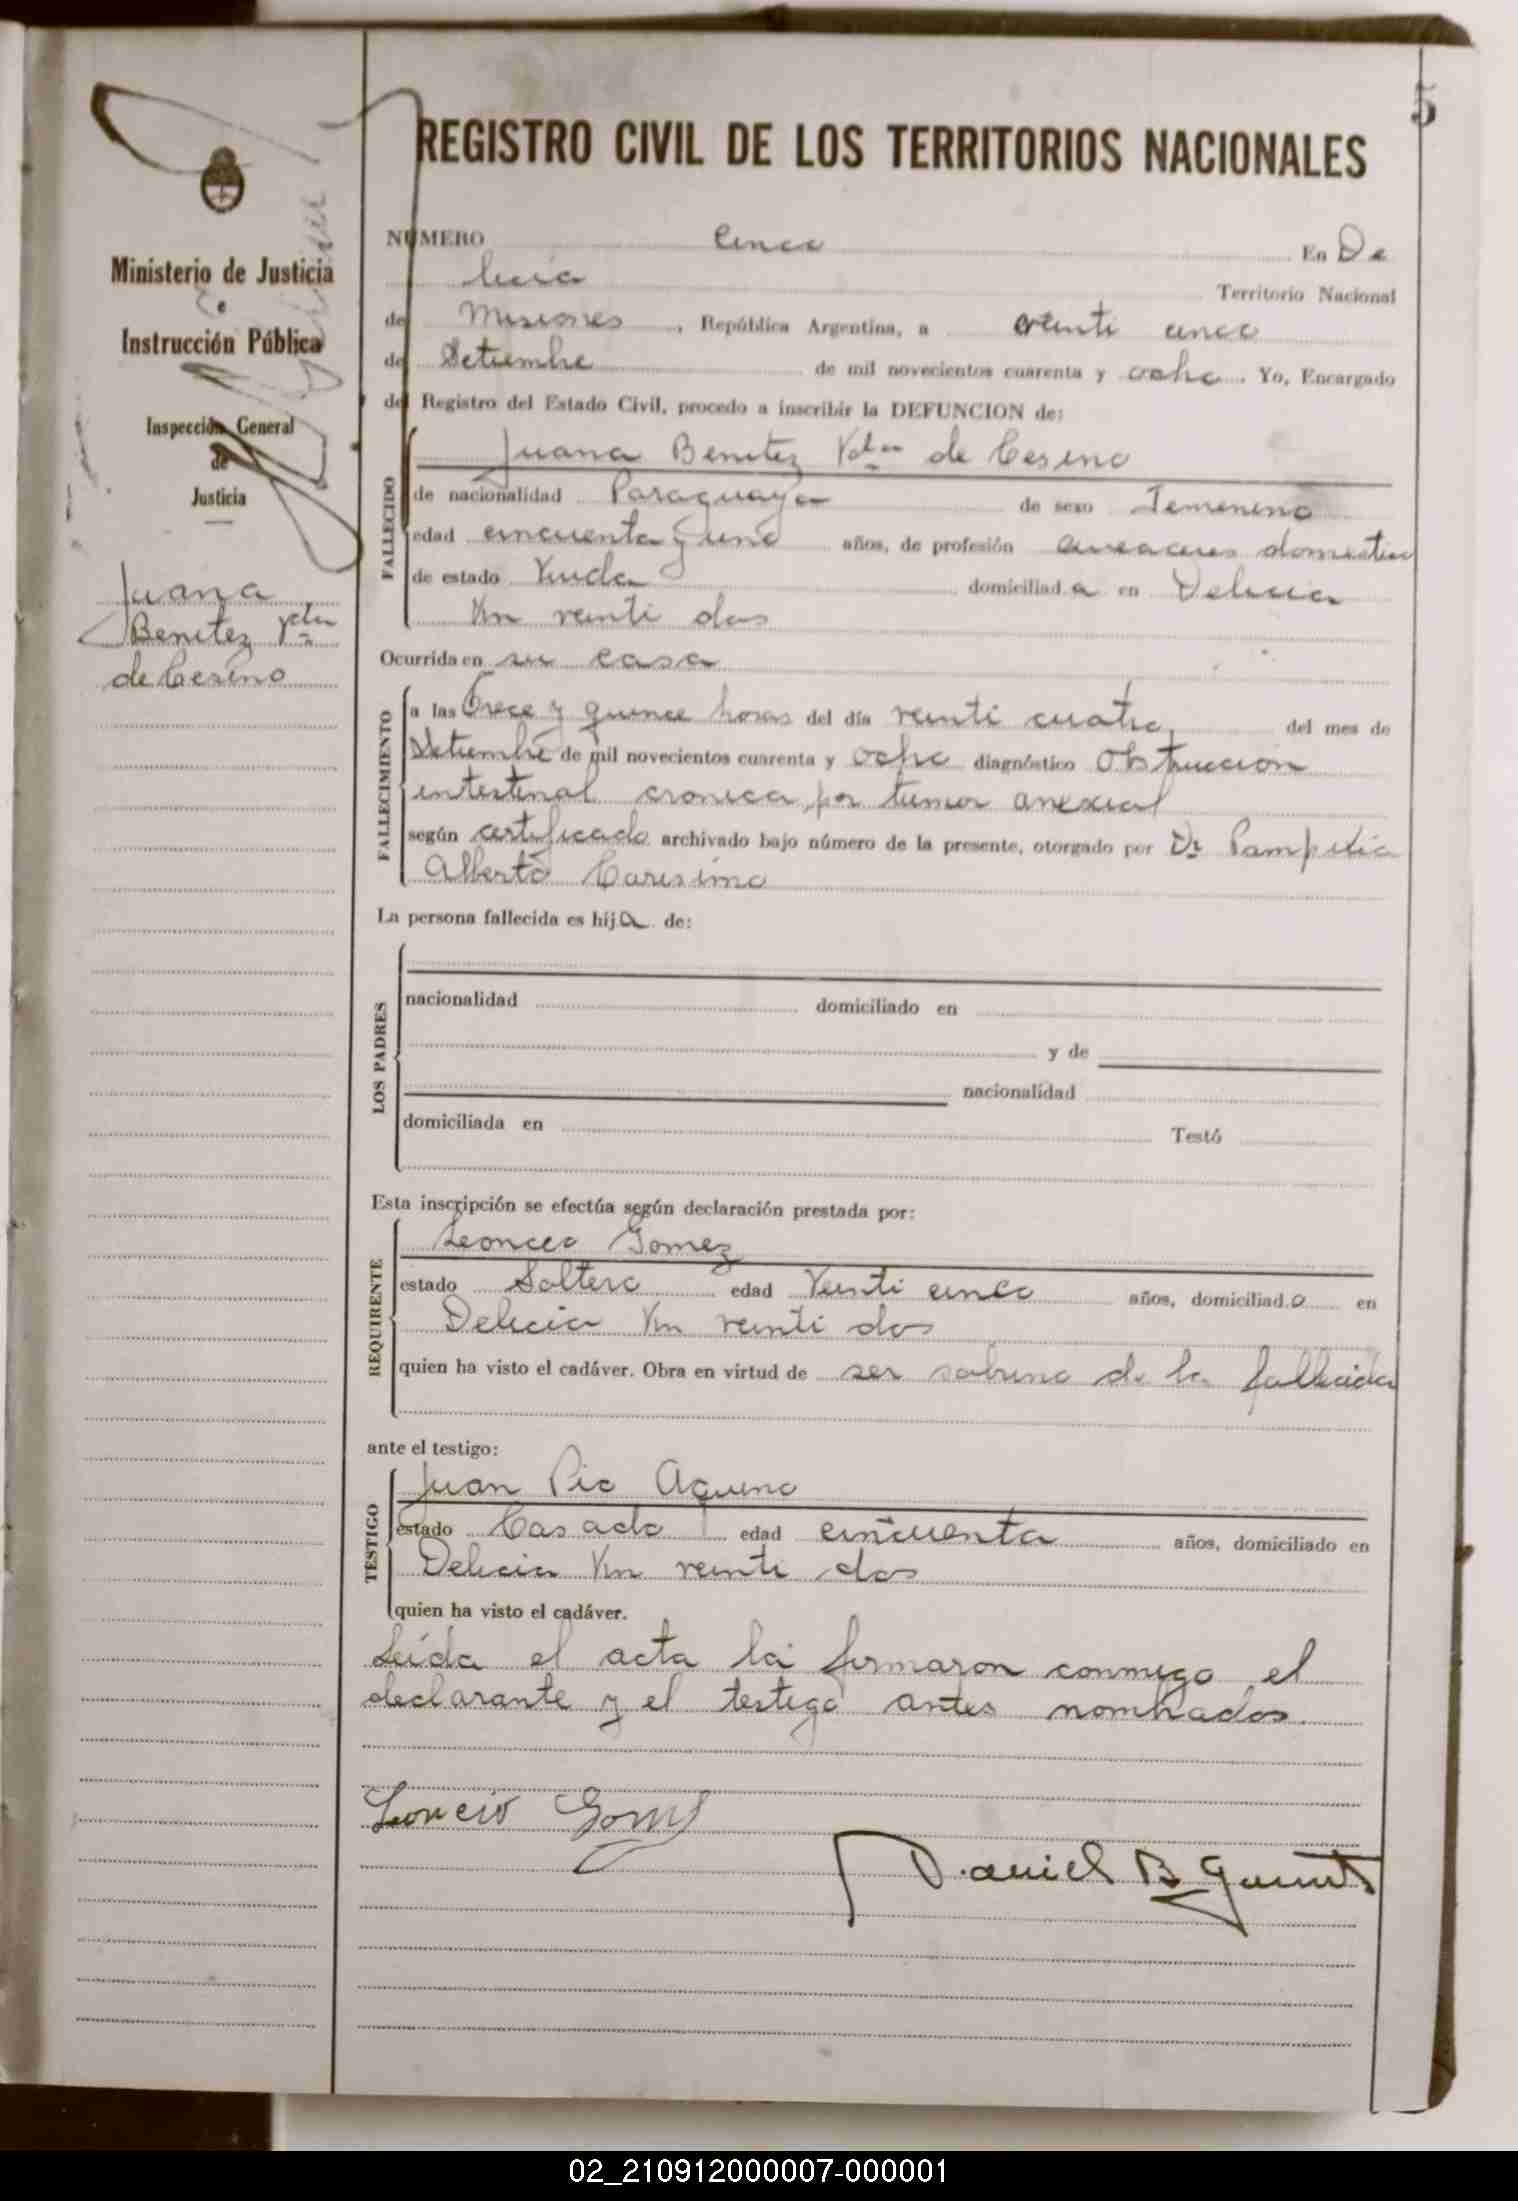 5
REGISTRO CIVIL DE LOS TERRITORIOS NACIONALES
Ministerio de Justicia
e
Instrucción Pública
Inspección General
de
Justicia
Juana
Benitez Vda
de Cesino
NUMERO Cinco En De
licia Territorio Nacional
de Misiones, República Argentina, a veinti cinco
de Setiembre de mil novecientos cuarenta y ocho. Yo, Encargado
del Registro del Estado Civil, procedo a inscribir la DEFUNCION de:
FALLECIDO
Juana Benitez Vda de Cesino
de nacionalidad Paraguaya de sexo Femenino
edad cincuenta y uno años, de profesión domestico
de estado Viuda domiciliad a en Delicia
Km veinti dos
Ocurrida en su casa
FALLECIMIENTO
a las trece y quince horas del día veinti cuatro del mes de
Setiembre de mil novecientos cuarenta y ocho diagnóstico Obstruccion
intestinal cronica por tumor anexial
según certificado archivado bajo número de la presente, otorgado por Dr
Alberto Carisimo
La persona fallecida es hija de:
LOS PADRES
nacionalidad domiciliado en
y de
nacionalidad
domiciliada en Testó
Esta inscripción se efectúa según declaración prestada por:
REQUIRENTE
Leoncio Gomez
estado Soltero edad Veinti cinco años, domiciliado en
Delicia Km veinti dos
quien ha visto el cadáver. Obra en virtud de ser sobrino de la fallecida
ante el testigo:
TESTIGO
Juan Pio Aquino
estado Casado edad cincuenta años, domiciliado en
Delicia Km veinti dos
quien ha visto el cadáver.
Leida el acta la firmaron conmigo el
declarante y el testigo antes nombrados
Leoncio Gomez
Daniel B
02_210912000007-000001